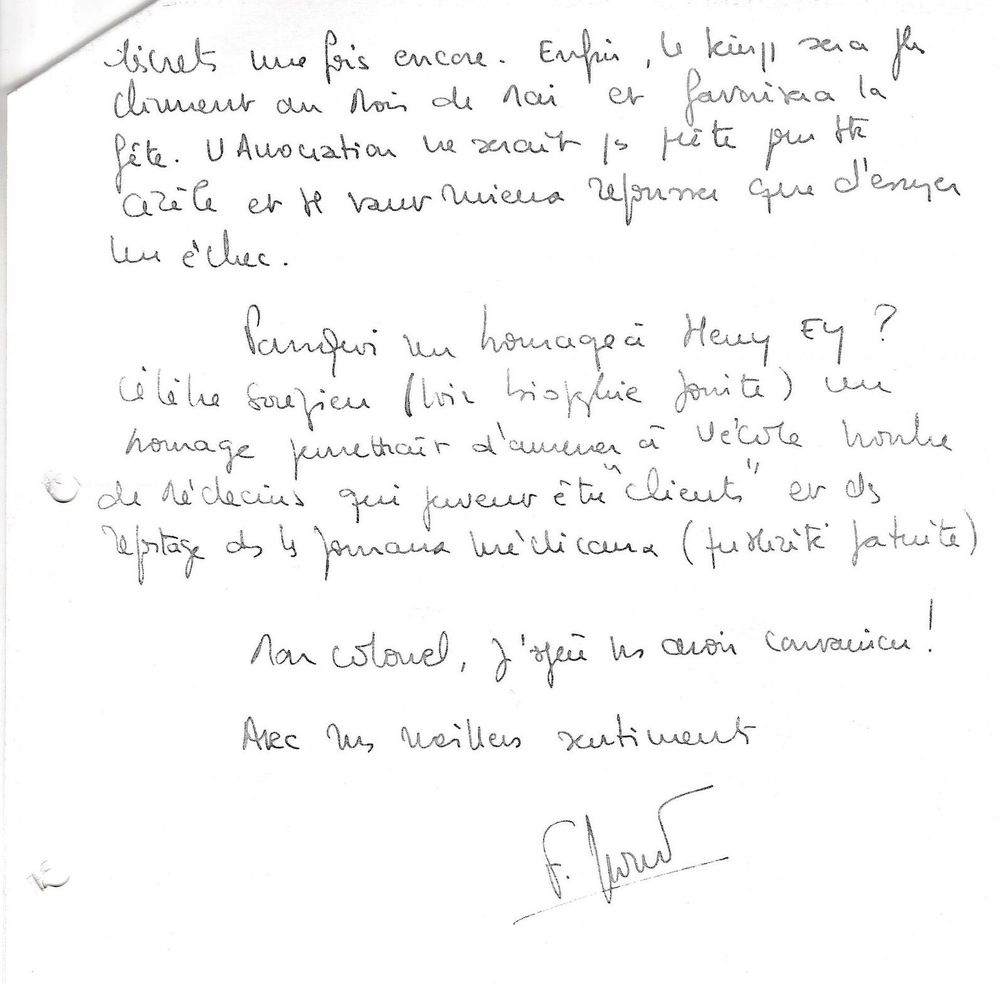 discrets une fois encore. Enfin, le temps sera plus
clément au Mois de Mai et favorisera la
fête. L'Association ne serait ps prête pour
et il vaut mieux repousser que d'essuyer
un échec.
Pourquoi un homage à Henry EY ?
Célèbre Sorézien (Voir biographie jointe) un
homage permettrait d'amener à l'école nombre
de Médecins qui peuvent être "clients" et des
reportage ds ls journaux médicaux (publicité gratuite)
Mon colonel, j'espère vs avoir convaincu !
Avec mes meilleurs sentiments
F.